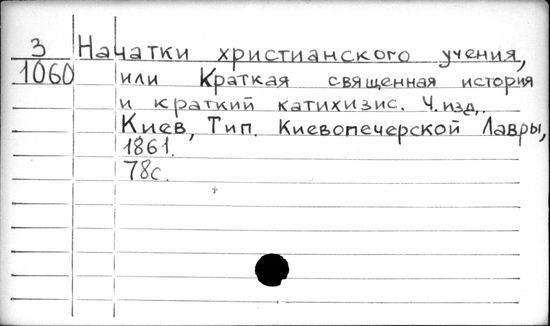 З Начатки христианского учения,
1060 или Краткая священная история
и краткий катихизис. Ч.изд.
Киев, Тип. Киевопечерской Лавры,
1861.
78с.